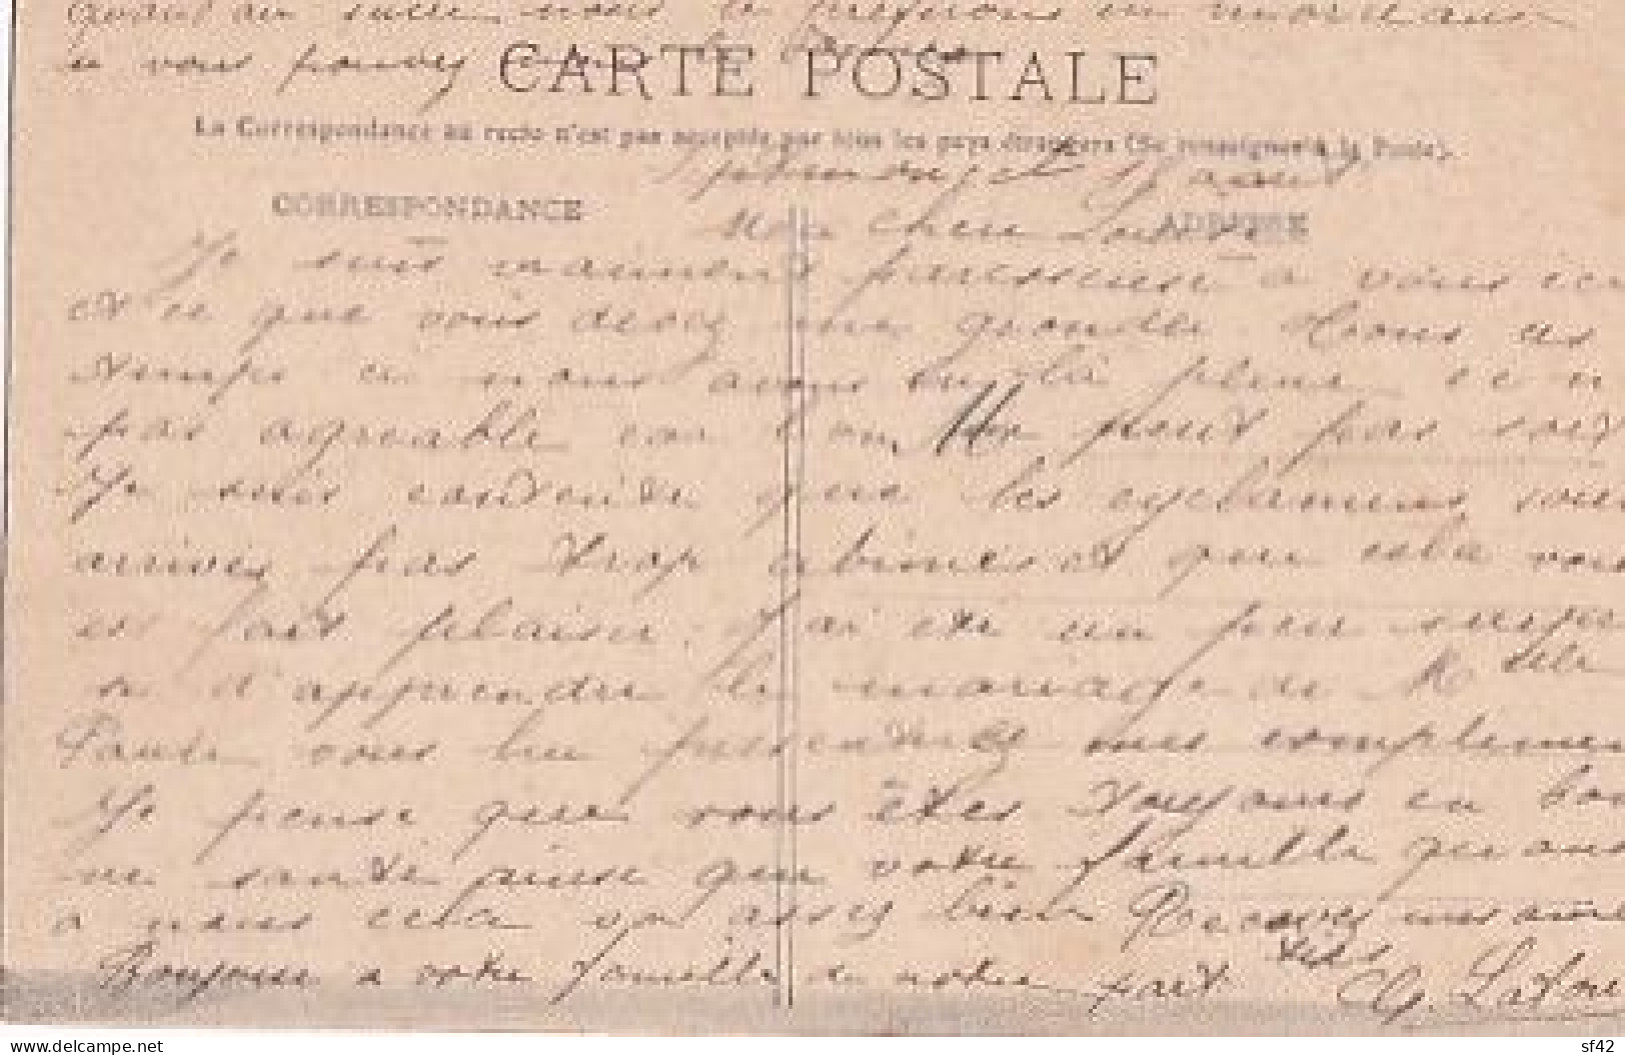 Quand au sucre nous le preferons en morceaux
si vous pouvez
CARTE POSTALE
La Correspondance au recto n'est pas acceptée par tous les pays étrangers (Se renseigner à la Poste).
CORRESPONDANCE
ADRESSE
Mon cher
Je suis vraiment paresseuse a vous ecr
et ce que vous devez me gronder. Tous
temps ci nous avons eu de la pluie ce n
pas agreable car l'on ne peut pas sort
Je suis contente que les cyclamens soie
arrives pas trop abimes et que cela vous
es fait plaisir. J'ai ete un peu surpri
se d'apprendre le mariage de Melle
vous lui presenterez mes complimen
Je pense que vous êtes toujours en bon
ne santé ainsi que votre famille quant
a nous cela va assez bien Recevez mes amit
ties
Bonjour a votre famille de notre part
www.delcampe.net
sf42